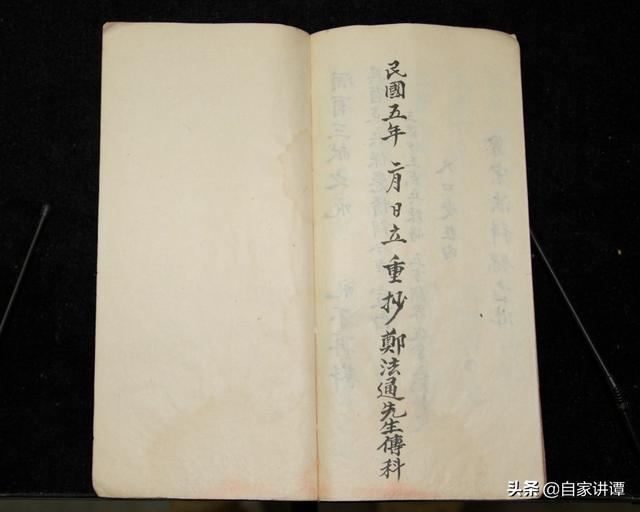 民國五年 二月 日立 重抄鄭法通先生傳科
头条 @自家讲谭